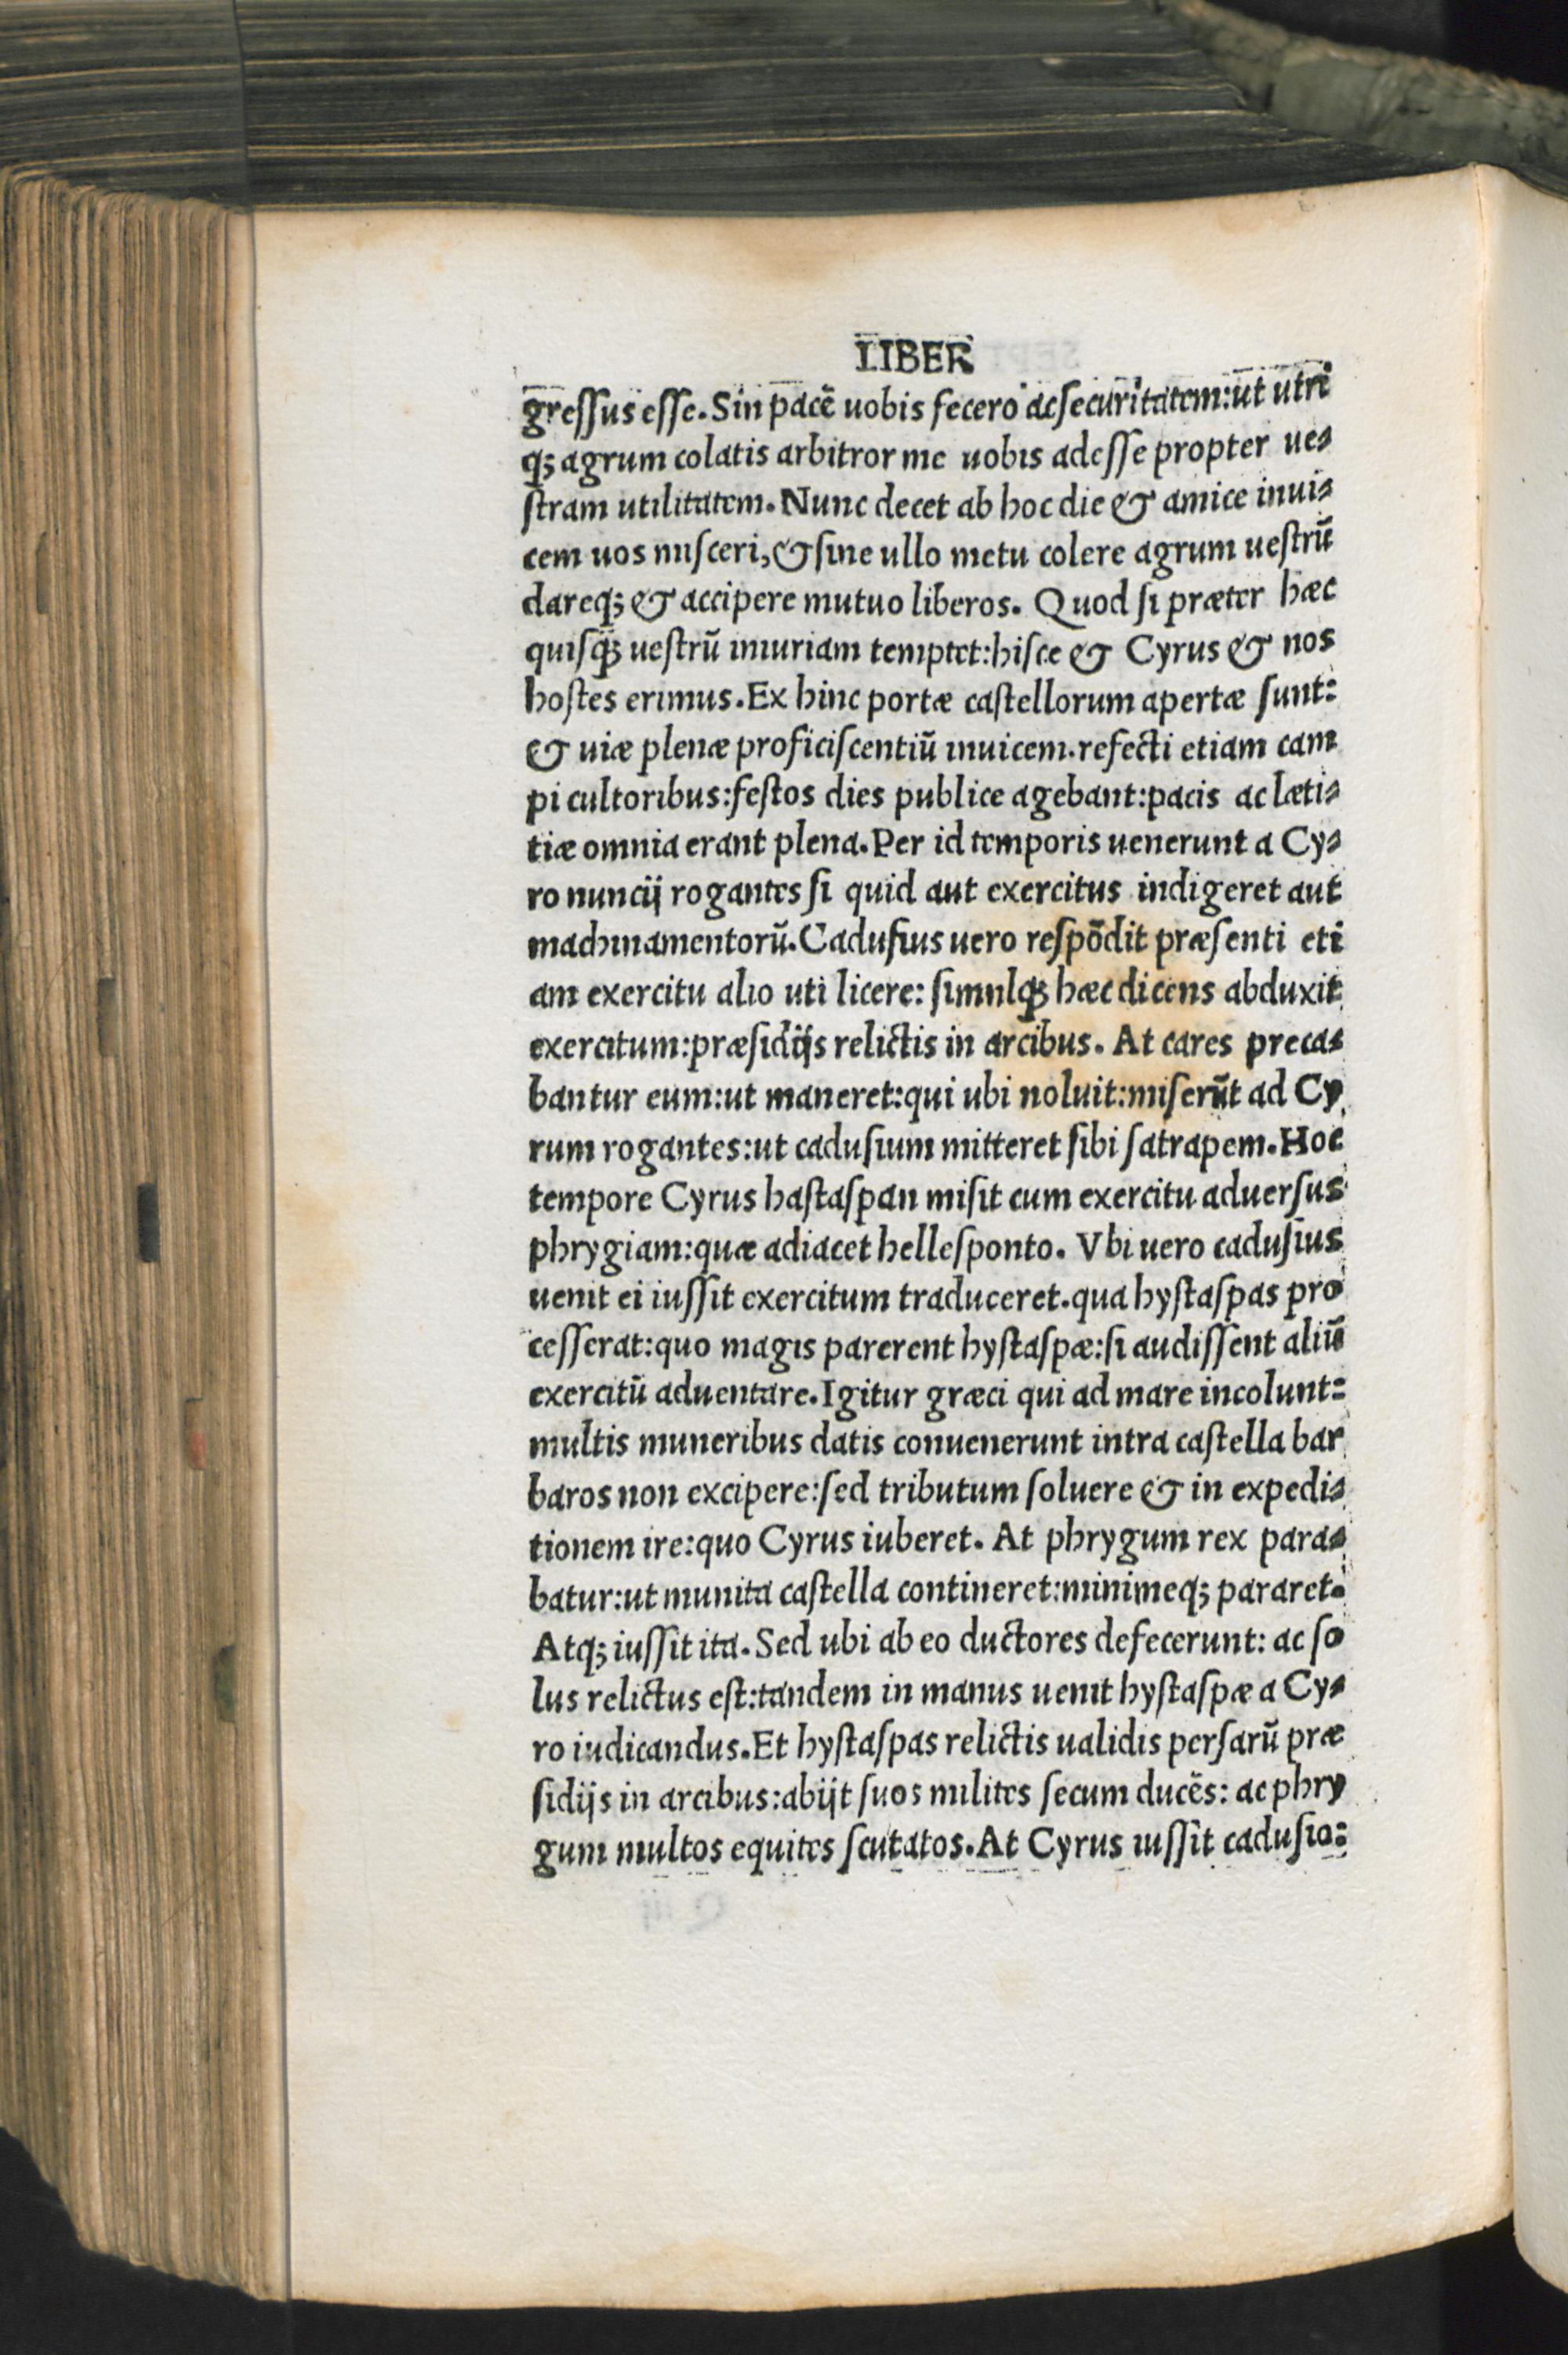 LIBER
greſſus eſſe. Sin pacē uobis fecero ac ſecuritatem: ut utri
qꝫ agrum colatis arbitror me uobis adeſſe propter ue⸗
ſtram utilitatem. Nunc decet ab hoc die & amice inui⸗
cem uos miſceri, & ſine ullo metu colere agrum ueſtrū
dareqꝫ & accipere mutuo liberos. Quod ſi præter hæc
quiſqꝫ ueſtrū iniuriam temptet: hiſce & Cyrus & nos
hoſtes erimus. Ex hinc portæ caſtellorum apertæ ſunt:
& uiæ plenæ proficiſcentiū inuicem. refecti etiam cam
pi cultoribus: feſtos dies publice agebant: pacis ac læti⸗
tiæ omnia erant plena. Per id temporis uenerunt a Cy⸗
ro nuncij rogantes ſi quid aut exercitus indigeret aut
machinamentorū. Caduſius uero reſpōdit præſenti eti
am exercitu alio uti licere: ſimnlqꝫ hæc dicens abduxit
exercitum: præſidijs relictis in arcibus. At cares preca⸗
bantur eum: ut maneret: qui ubi noluit: miſerūt ad Cy
rum rogantes: ut caduſium mitteret ſibi ſatrapem. Hoc
tempore Cyrus haſtaſpan miſit cum exercitu aduerſus
phrygiam: quæ adiacet helleſponto. Vbi uero caduſius
uenit ei iuſſit exercitum traduceret. qua hyſtaſpas pro
ceſſerat: quo magis parerent hyſtaſpæ: ſi audiſſent aliū
exercitū aduentare. Igitur græci qui ad mare incolunt:
multis muneribus datis conuenerunt intra caſtella bar
baros non excipere: ſed tributum ſoluere & in expedi⸗
tionem ire: quo Cyrus iuberet. At phrygum rex para⸗
batur: ut munita caſtella contineret: minimeqꝫ pararet.
Atqꝫ iuſſit ita. Sed ubi ab eo ductores defecerunt: ac ſo
lus relictus eſt: tandem in manus uenit hyſtaſpæ a Cy⸗
ro iudicandus. Et hyſtaſpas relictis ualidis perſarū præ
ſidijs in arcibus: abijt ſuos milites ſecum ducēs: ac phry
gum multos equites ſcutatos. At Cyrus iuſſit caduſio: